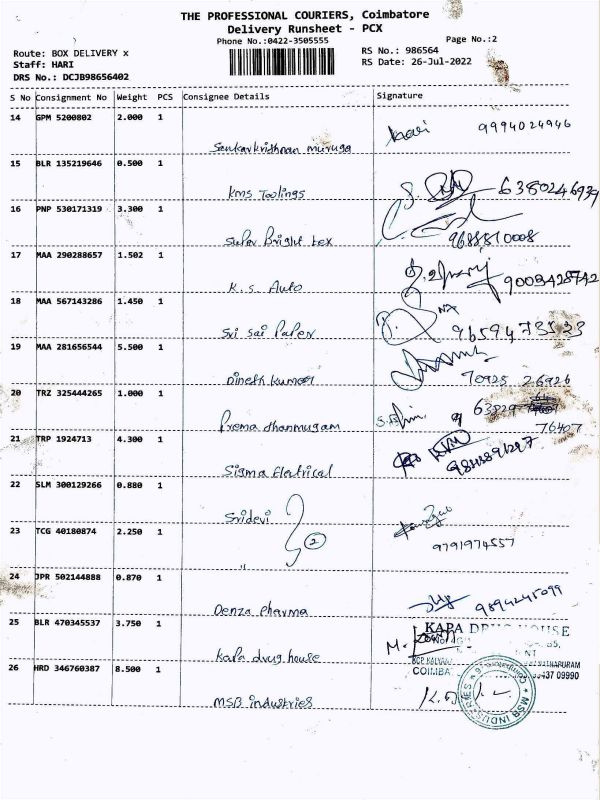 THE PROFESSIONAL COURIERS, Coimbatore
Delivery Runsheet - PCX
Phone No.:0422-3505555
Page No.:2
Route: BOX DELIVERY x
Staff: HARI
DRS No.: DCJB98656402
RS No.: 986564
RS Date: 26-Jul-2022
S No Consignment No Weight PCS Consignee Details Signature
14 GPM 5200802 2.000 1
hari 9994024946
Senkarkrishnan muruga
15 BLR 135219646 0.500 1
Kms Toolings
6380246939
16 PNP 530171319 3.300 1
Super Bright tex
9688810008
17 MAA 290288657 1.502 1
K.s. Auto
9003428742
18 MAA 567143286 1.450 1
Sri Sai Paper
9659473533
19 MAA 281656544 5.500 1
Dinesh kumar
70925 26926
20 TRZ 325444265 1.000 1
Prema dhanmugam
63829
76407
21 TRP 1924713 4.300 1
Sigma Electrical
22 SLM 300129266 0.880 1
Sridevi
23 TCG 40180874 2.250 1
2
9791974557
"
24 JPR 502144888 0.870 1
Denza Pharma
9894245099
25 BLR 470345537 3.750 1
KAPA DRUG HOUSE
Kapa drug house
COIMBAT
437 09990
26 HRD 346760387 8.500 1
MSB industries
MSB INDUSTRIES